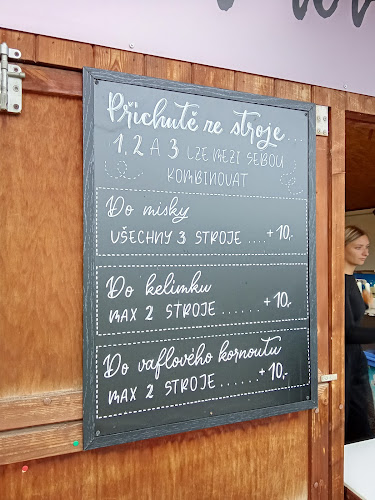 Příchutě ze stroje...
1, 2 A 3 LZE MEZI SEBOU
KOMBINOVAT
Do misky
VŠECHNY 3 STROJE .... +10,-
Do kelímku
MAX 2 STROJE ...... +10,-
Do vaflového kornoutu
MAX 2 STROJE ...... +10,-